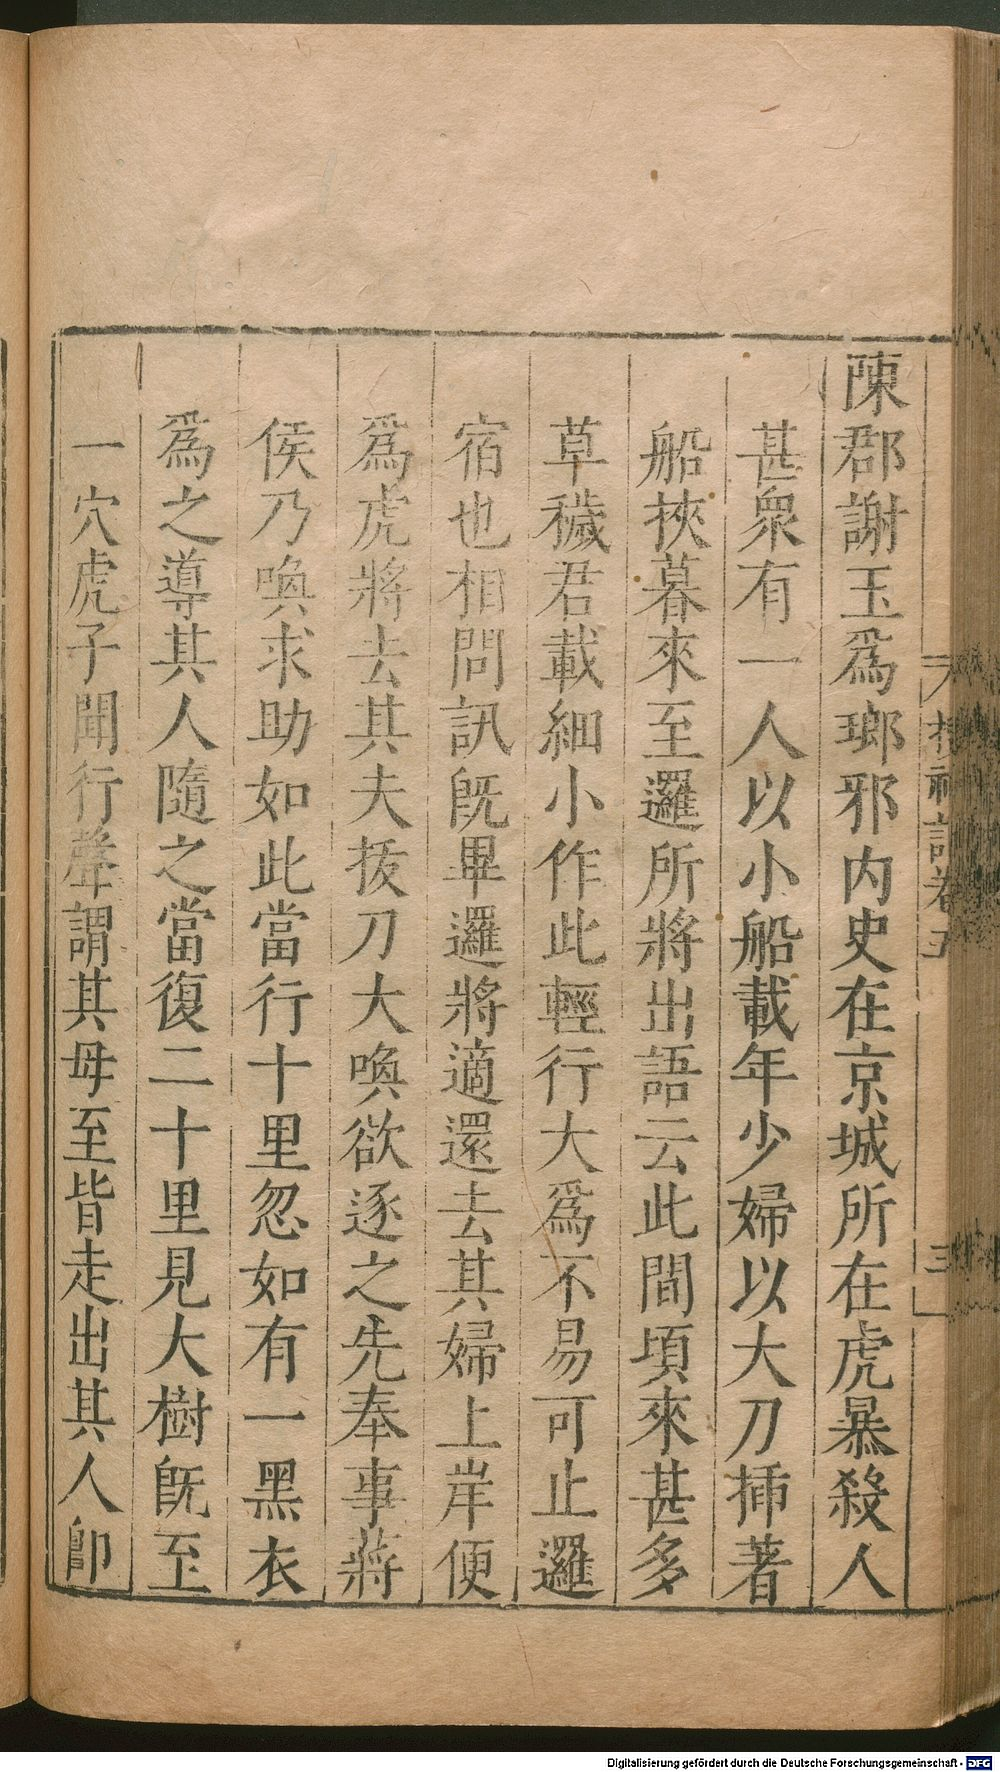 陳郡謝玉爲瑯邪内史在京城所在虎暴殺人
甚衆有一人以小船載年少婦以大刀揷著
船挾暮來至邏所將出語云此間頃來甚多
草穢君載細小作此輕行大爲不易可止邏
宿也相問訊旣畢邏將適還去其婦上岸便
爲虎將去其夫拔刀大喚欲逐之先奉事蔣
侯乃喚求助如此當行十里忽如有一黑衣
爲之導其人隨之當復二十里見大樹旣至
一穴虎子聞行聲謂其母至皆走出其人卽
搜神記卷五
三
Digitalisierung gefördert durch die Deutsche Forschungsgemeinschaft - DFG